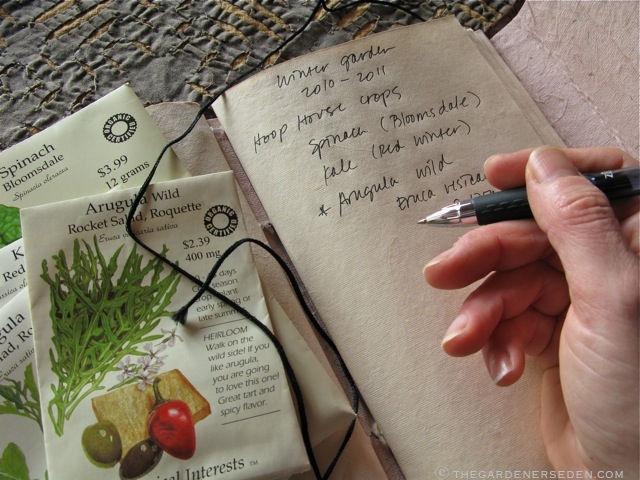 Winter garden
2010 - 2011
Hoop House crops
Spinach (Bloomsdale)
Kale (Red Winter)
* Arugula wild
Eruca
Spinach
Bloomsdale
Spinacia oleracea
ORGANIC
CERTIFIED
$3.99
12 grams
Arugula Wild
Rocket Salad, Roquette
Eruca vesicaria sativa
ORGANIC
CERTIFIED
$2.39
400 mg
days
season
crop plant
early spring or
late summer
HEIRLOOM
Walk on the
wild side! If you
like arugula,
you are going
to love this one!
Great tart and
spicy flavor.
Interests ™
K
Red
© THEGARDENERSEDEN.COM